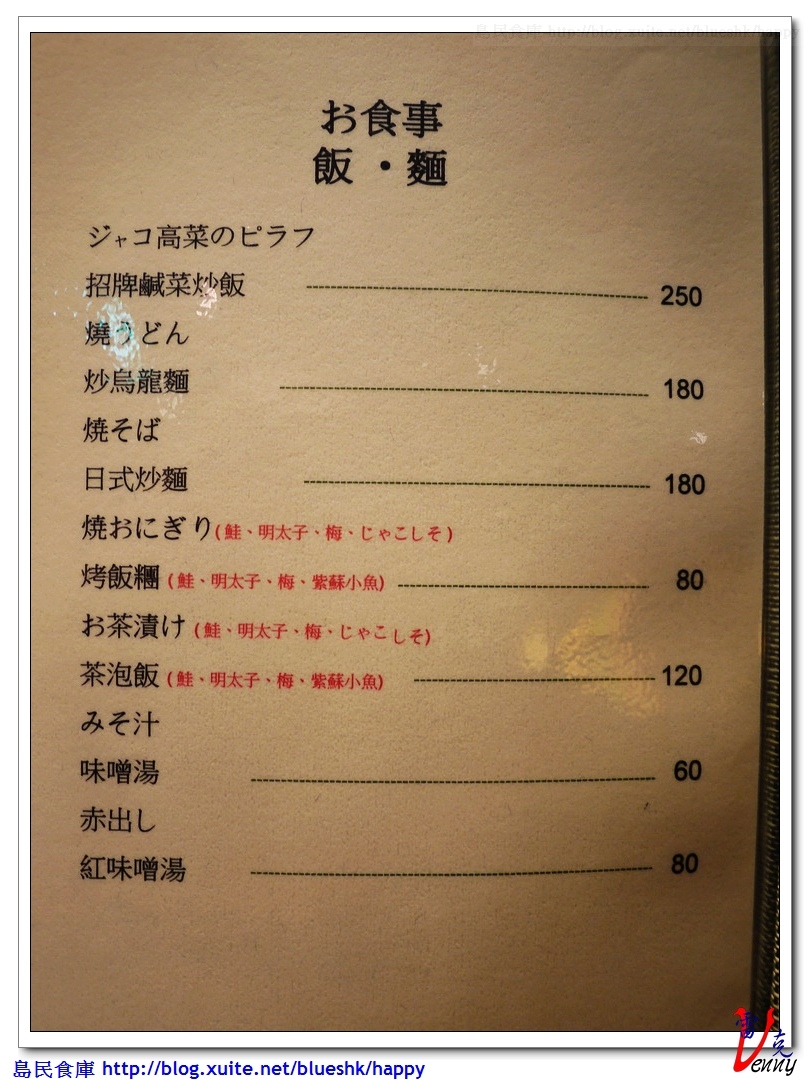 島民食庫 http://blog.xuite.net/blueshk/happy
お食事
飯・麵
ジャコ高菜のピラフ
招牌鹹菜炒飯 250
燒うどん
炒烏龍麵 180
焼そば
日式炒麵 180
焼おにぎり(鮭、明太子、梅、じゃこしそ)
烤飯糰(鮭、明太子、梅、紫蘇小魚) 80
お茶漬け(鮭、明太子、梅、じゃこしそ)
茶泡飯(鮭、明太子、梅、紫蘇小魚) 120
みそ汁
味噌湯 60
赤出し
紅味噌湯 80
雷克
Venny
島民食庫 http://blog.xuite.net/blueshk/happy